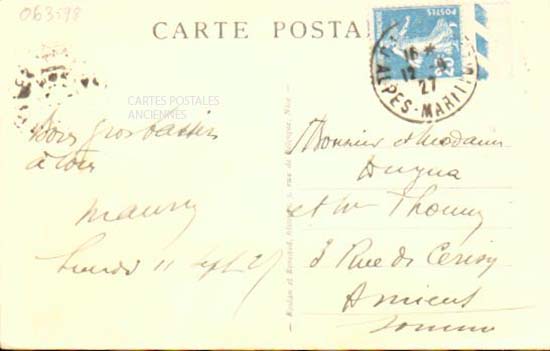 063598
CARTE POSTA
POSTES
25
16
12
27
ALPES-MARITIM
CARTES POSTALES
ANCIENNES
Bons gros baisers
à tous
Maury
Lundi 11 Sept 27
Monsieur et Madame
et Mr Thouny
3 Rue de Cerisy
Amiens
Somme